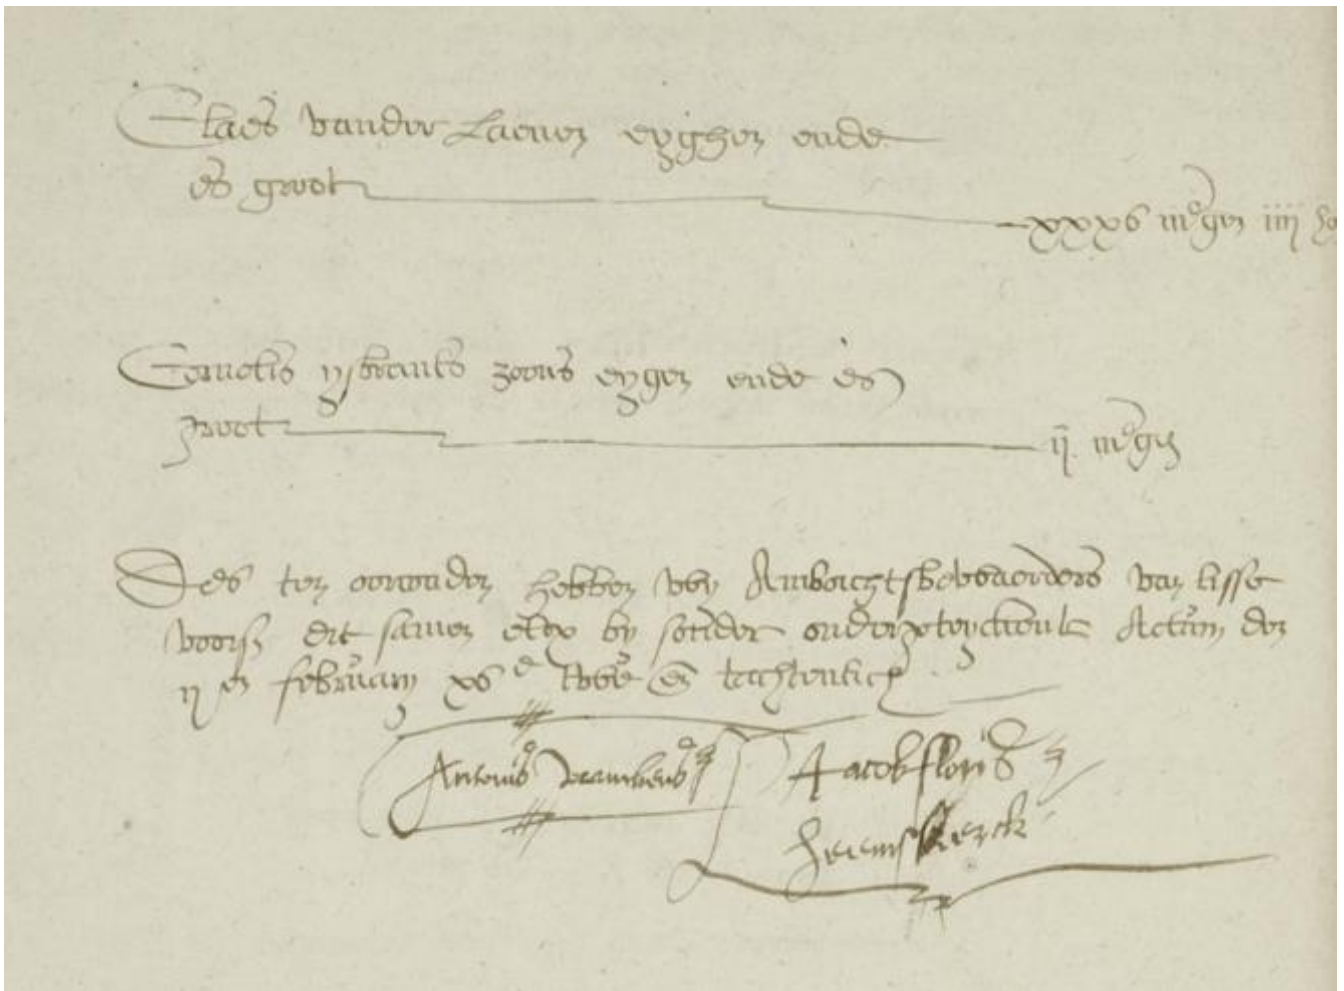 Claes vander Laenen eyghen ende
es groot xxxv morgen iiij ho
Cornelis ysbrants zoons eygen ende es
groot ij morgen
Des ten oorconden hebben wy Ambochtsbewaerders van lisse
voors dit samen elcx by sonder onderteyckent Actum den
ij en februarij xvc twee en tachtentich
Antonis
Jacob florisz
heemskerck